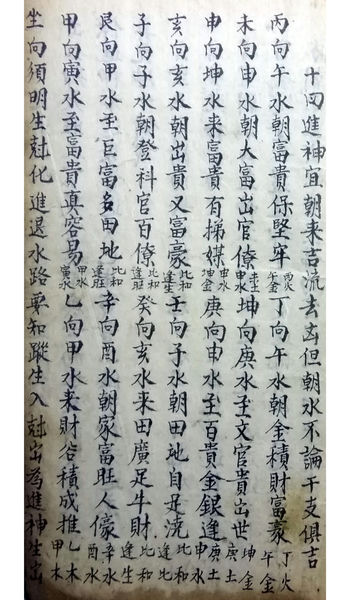 十四進神宜朝来吉流去凶但朝水不論干支俱吉
丙向午水朝富貴保堅牢丙火午金丁向午水朝金積財富豪丁火午金
未向申水朝大富出官僚未土申水坤向庚水至文官貴出世坤金庚土
申向坤水来富貴有梯媒申水坤金庚向申水至百貴金銀逢庚土申水
亥向亥水朝出貴又富豪比和逢生壬向子水朝田地自足澆比和逢比
子向子水朝登科官百僚比和逢旺癸向亥水来田廣足牛財比和逢生
艮向甲水至巨富多田地比和逢旺辛向酉水朝家富旺人辛水酉水
甲向寅水至富貴真容易甲水寅水乙向甲水来財谷積成推乙木甲木
坐向須明生尅化進退水路要知蹤生入尅出為進神生出